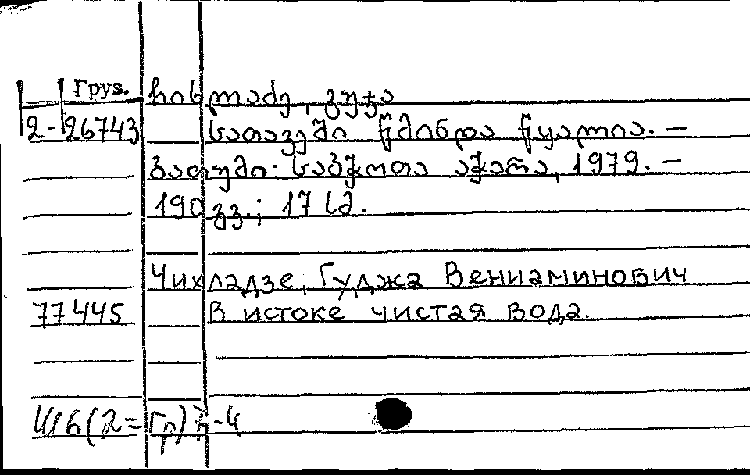 Груз. ჩიხლაძე, გუჯა
2-26743 სათავეში წმინდა წყალია. –
ბათუმი: საბჭოთა აჭარა, 1979. –
190 გვ.; 17 სმ.
Чихладзе, Гуджа Вениаминович
77445 В истоке чистая вода.
Ш6(2=Гр)